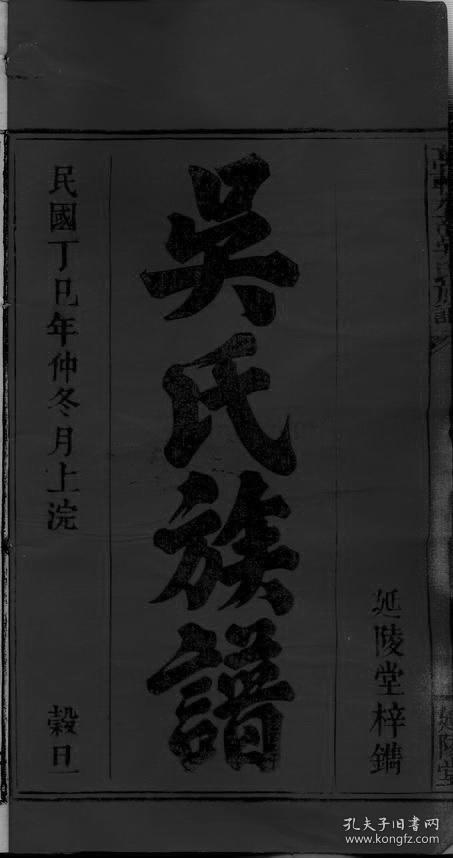 延陵堂梓鐫
吳氏族譜
民國丁巳年仲冬月上浣 穀旦
延陵堂
孔夫子旧书网
kongfz.com